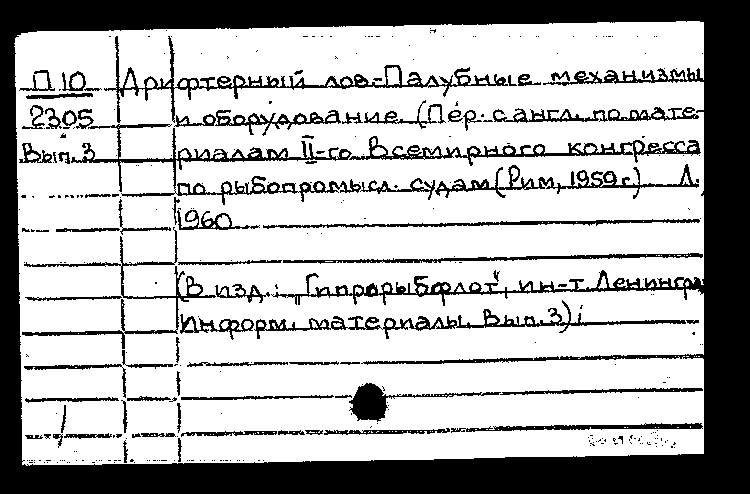 П 10 Дрифтерный лов-Палубные механизмы
2305 и оборудование. (Пер. с англ. по мате-
Вып. 3 риалам II-го Всемирного конгресса
по рыбопромысл. судам (Рим, 1959 г.) Л.,
1960
(В изд.: „Гипрорыбфлот", ин-т. Ленингра
Информ. материалы. Вып. 3) ;